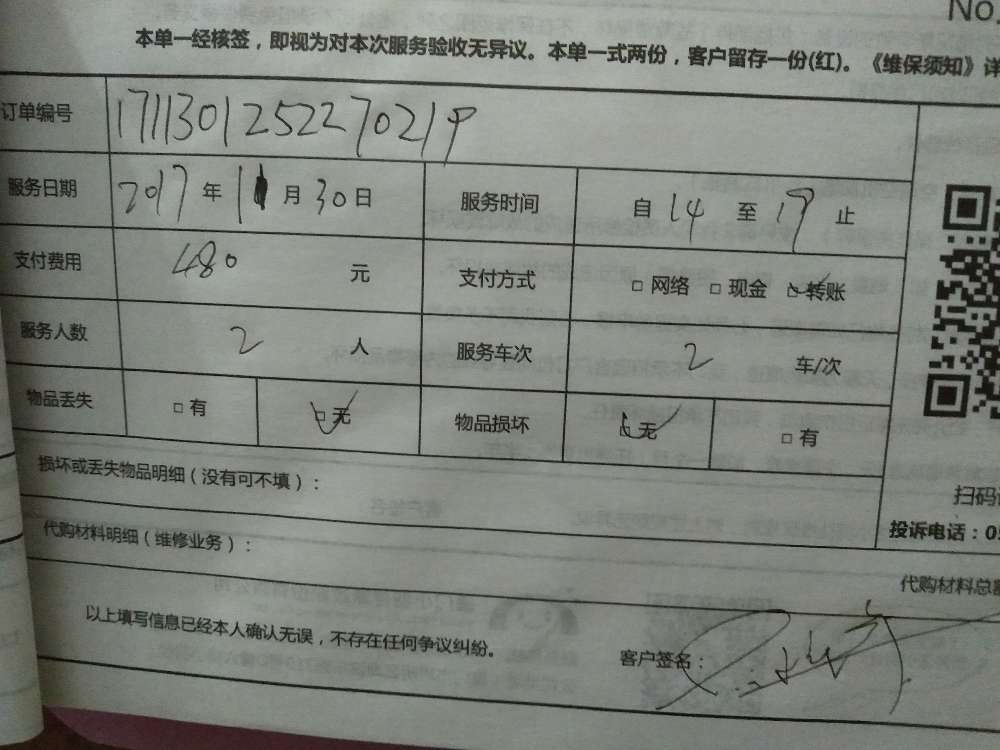 No.
本单一经核签，即视为对本次服务验收无异议。本单一式两份，客户留存一份(红)。《维保须知》详
订单编号 1711301252270219
服务日期 2017 年 11 月 30 日 服务时间 自 14 至 17 止
支付费用 480 元 支付方式 □ 网络 □ 现金 □ 转账
服务人数 2 人 服务车次 2 车/次
物品丢失 □ 有 □ 无 物品损坏 □ 无 □ 有
损坏或丢失物品明细（没有可不填）：
扫码
投诉电话：0
代购材料明细（维修业务）：
代购材料总
以上填写信息已经本人确认无误，不存在任何争议纠纷。
客户签名：